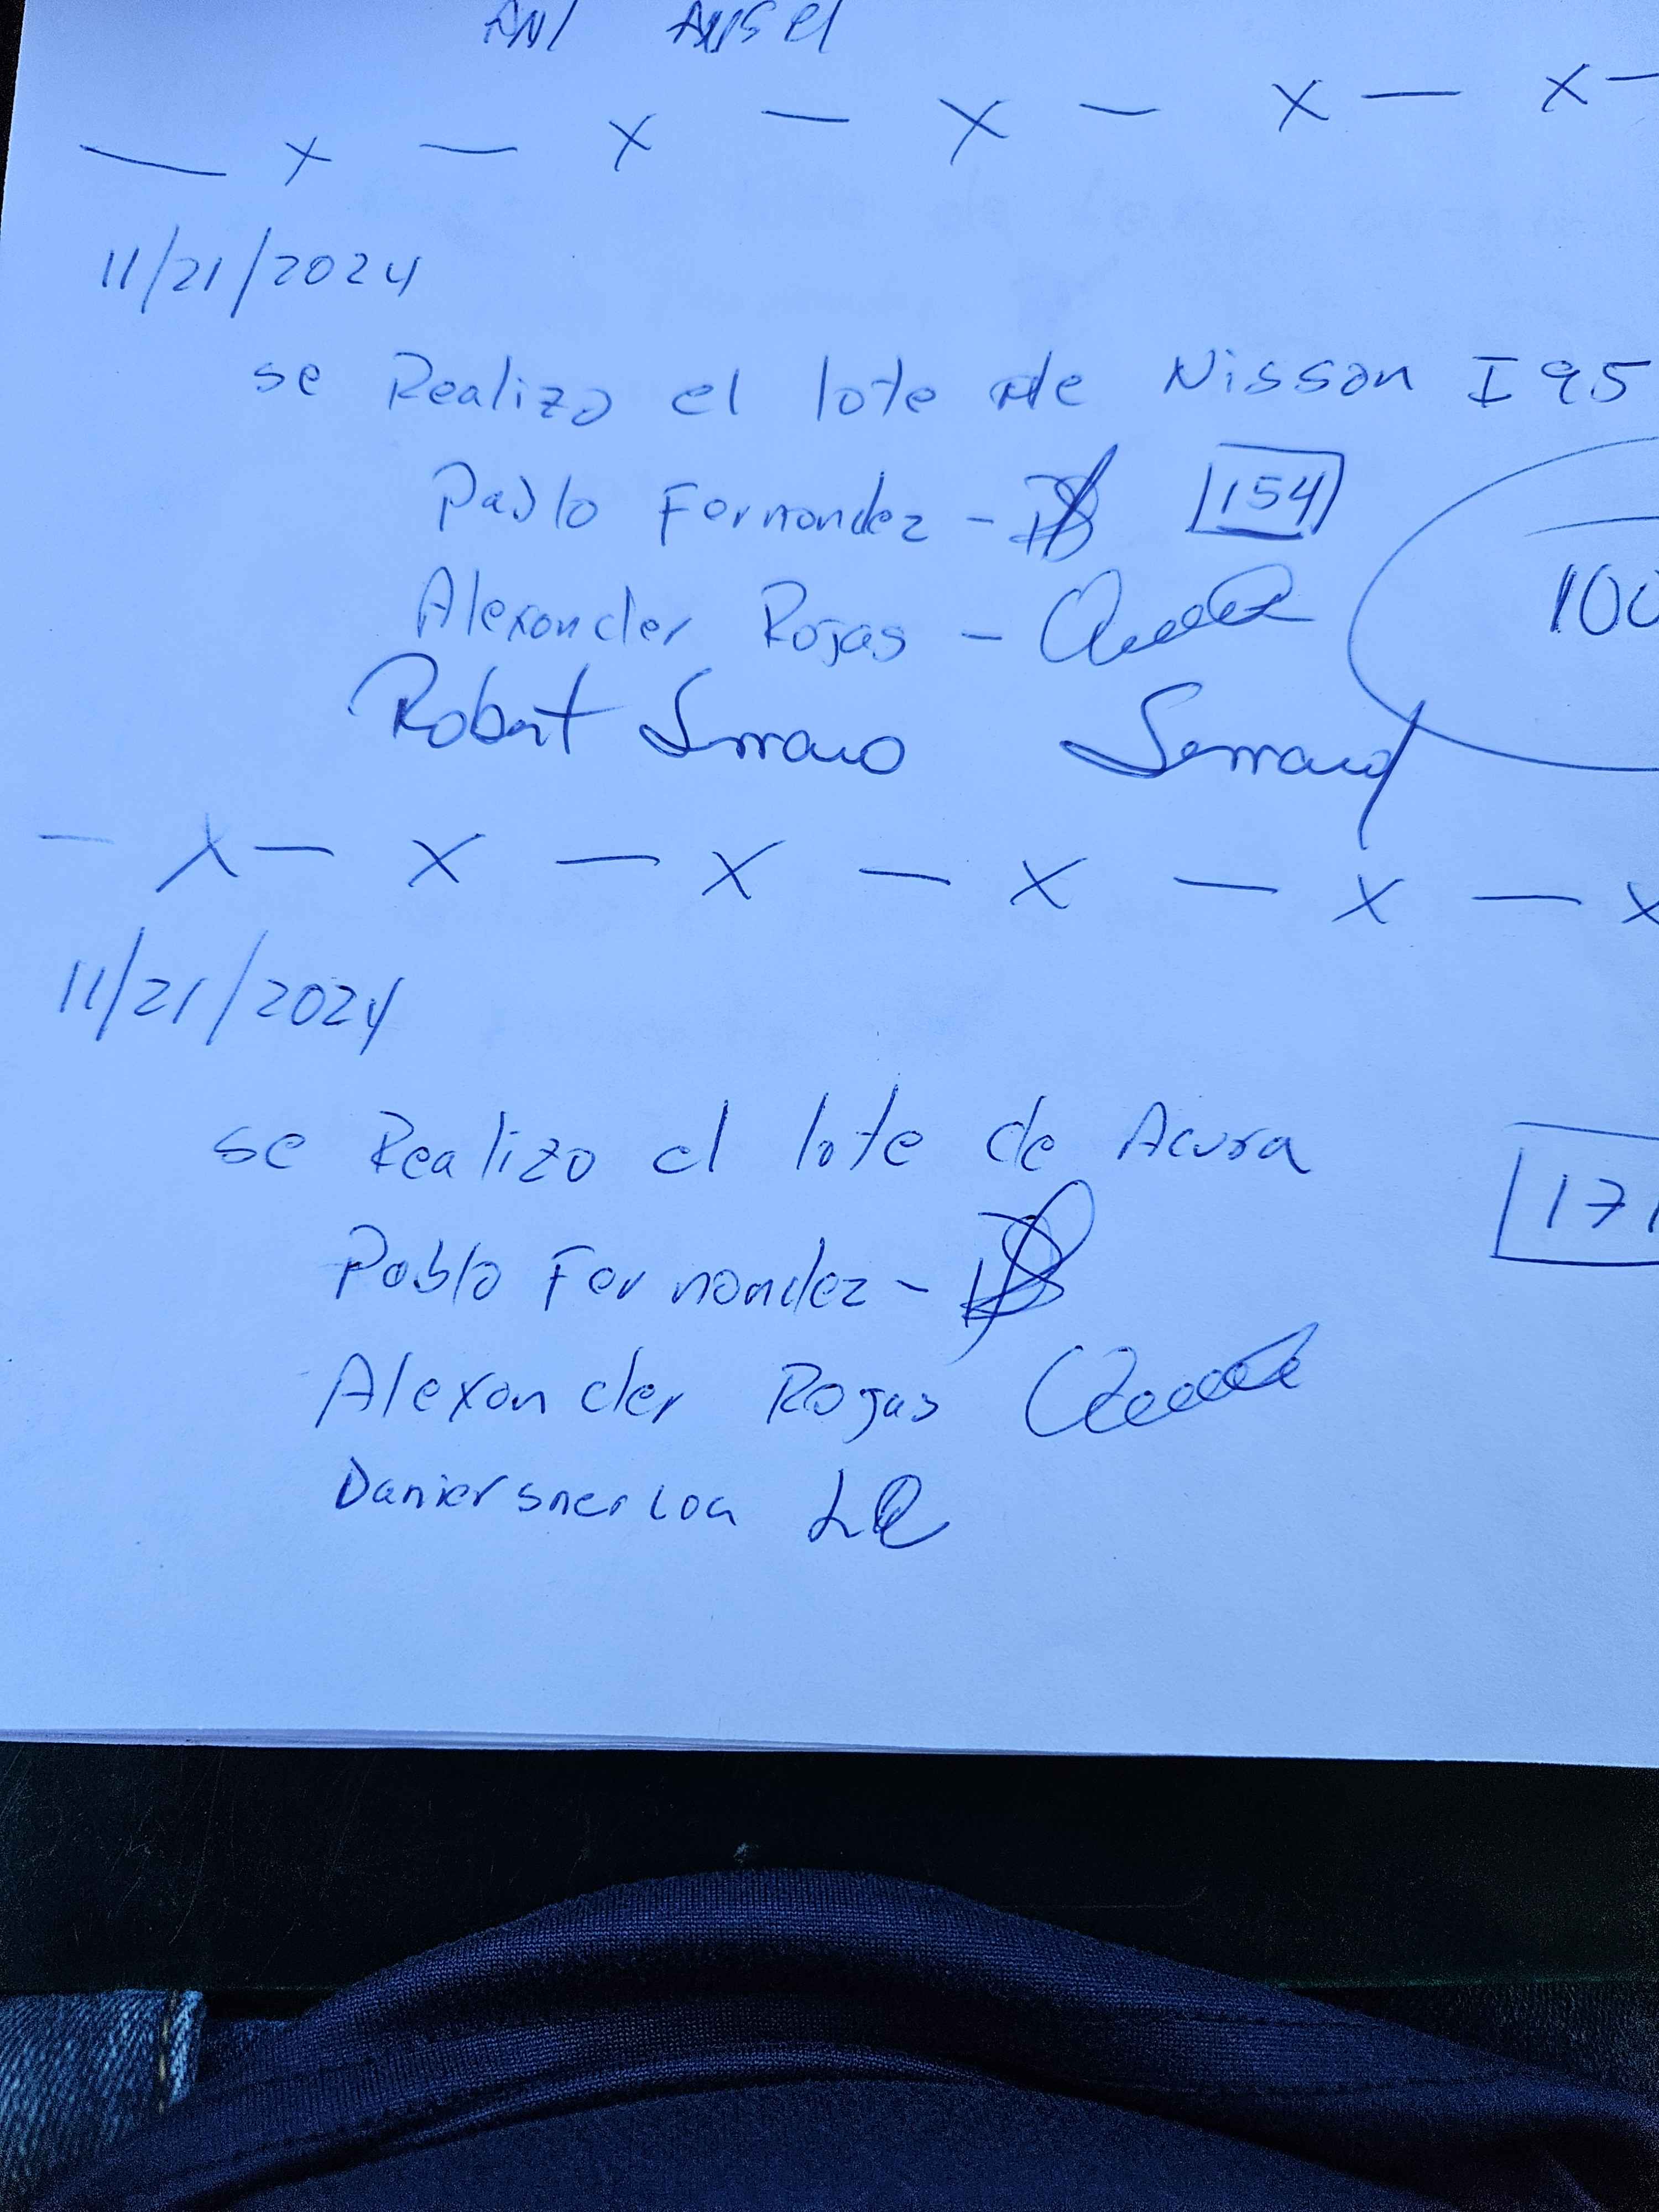 11/21/2024
se Realizo el lote de Nissan I95
Pablo Fernandez - 154
Alexander Rojas -
100
Robert Serrano Serrano
11/21/2024
se Realizo el lote de Acura
171
Pablo Fernandez -
Alexander Rojas